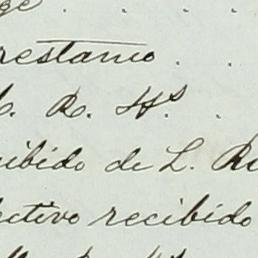 restamo . .
C. R. Hs .
cibido de L. Ro
ectivo recibido